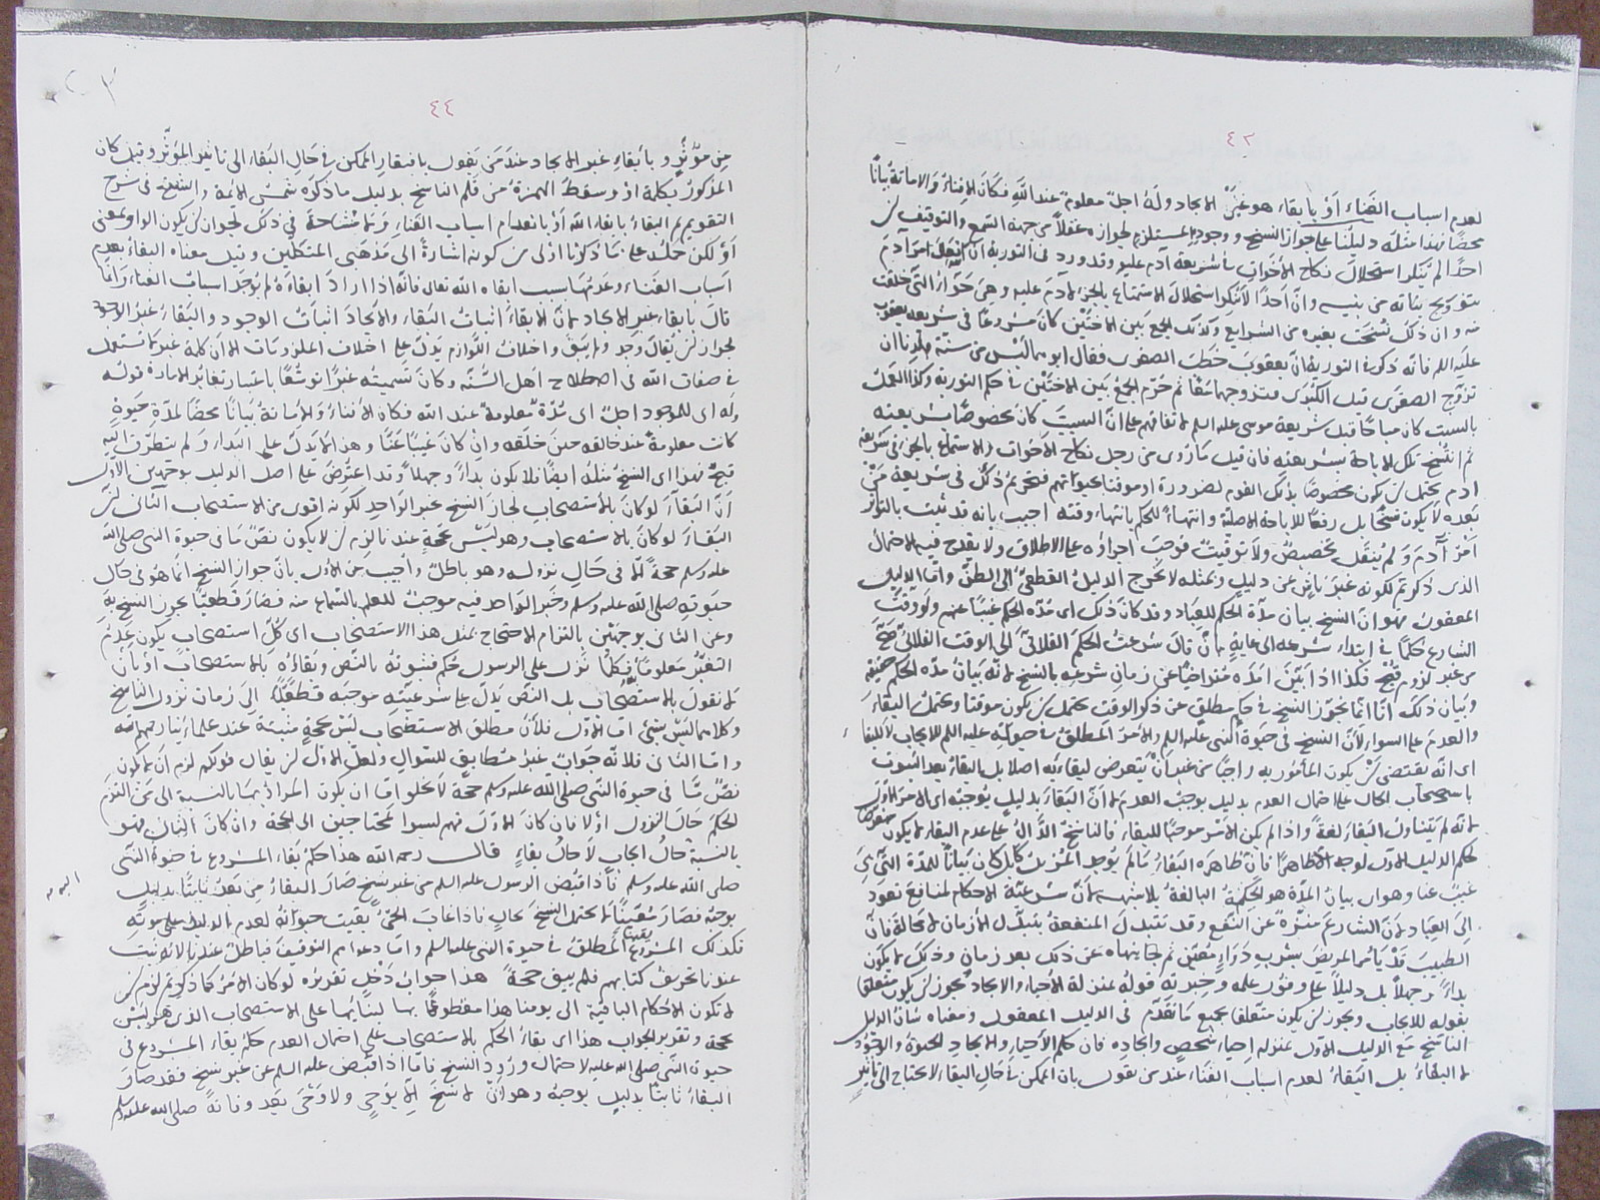 ٤٣
لعدم اسباب الفناء أو بابقاء هو غير الايجاد وله اجل معلوم عند الله فكان الافناء والاماتة بيانا
محضا فهذا مثله دليلنا على جواز النسخ ووجوده المستلزم لجوازه عقلا من جهة السمع والتوقيف ان
احدا لم ينكر استحلال نكاح الأخوات في شريعة ادم عليه وقد ورد في التورية ان الله تعالى امر آدم
بتزويج بناته من بنيه وان أحدا لا ينكر استحلال الاستمتاع بالجزء لآدم عليه وهي حواء التي خلقت
منه وان ذلك نسخت بغيره من الشرايع وكذلك الجمع بين الاختين كان مشروعا في شريعة يعقوب
عليه السلم فانه ذكر في التورية ان يعقوب خطب الصغرى فقال ابوهما ليس من سنة بلدنا ان
تزوج الصغرى قبل الكبرى فتزوجهما معا ثم حرم الجمع بين الاختين في حكم التورية وكذا العمل
بالسبت كان مباحا قبل شريعة موسى عليه السلم لاتفاقهم على ان السبت كان مخصوصا بشريعته
ثم انتسخ تلك الاباحة بشريعته فان قيل ما روى من رجل نكاح الاخوات والاستمتاع بالجزء في شريعة
ادم يحتمل ان يكون مخصوصا بذلك القوم لضرورة او موقتا بحيوتهم فتحريم ذلك في شريعة من
بعده لا يكون نسخا بل رفعا للاباحة الاصلية وانتهاء للحكم بانتهاء وقته اجيب بانه قد ثبت بالتواتر
امر آدم ولم ينقل تخصيص ولا توقيت فوجب اجراؤه على الاطلاق ولا يقدح فيه الاحتمال
الذي ذكرتم لكونه غير ناش عن دليل وبمثله لا يخرج الدليل القطعي الى الظن واما الدليل
المعقول فهو ان النسخ بيان مدة الحكم للعباد وقد كان ذلك اي مدة الحكم غيبا عنهم ولو وقت
الشارع حكما في ابتداء شرعه الى غاية بان قال شرعت الحكم الفلاني الى الوقت الفلاني صح
من غير لزوم قبح فكذا اذا بين امده متراخيا عن زمان شرعه بالنسخ لانه بيان مدة الحكم حقيقة
وبيان ذلك انا انما نجوز النسخ في حكم مطلق عن ذكر الوقت يحتمل ان يكون موقتا ويحتمل البقاء
والعدم على السواء لأن النسخ في حيوة النبي عليه السلم والأمر المطلق في حيوته عليه السلم للايجاب لا للبقاء
اي انه يقتضي ان يكون المأمور به واجبا من غير أن يتعرض لبقائه اصلا بل البقاء بعد الثبوت
باستصحاب الحال على احتمال العدم بدليل يوجب العدم لا أن البقاء بدليل يوجبه اي الامر الاول
لانه لم يتناول البقاء لغة واذا لم يكن الامر موجبا للبقاء فالناسخ الدال على عدم البقاء لا يكون متعرضا
لحكم الدليل الاول لوجه الا ظاهرا فان ظاهره البقاء ما لم يوجد المزيل بل كان بيانا للمدة التي هي
غيب عنا وهو اي بيان المدة هو الحكمة البالغة بلا شبهة لأن شرعية الاحكام لمنافع تعود
الى العباد لان الشارع منزه عن النفع وقد يتبدل المنفعة بتبدل الأزمان لا محالة فان
الطبيب قد يأمر المريض بشرب دواء معين ثم ينهاه عن ذلك بعد زمان وذلك لا يكون
بداء وجهلا بل دليلا على وفور علمه وخبرته قوله بمنزلة الاحياء والايجاد يجوز ان يكون متعلقا
بقوله للايجاب ويجوز ان يكون متعلقا بجميع ما تقدم في الدليل المعقول ومعناه شان الدليل
الناسخ مع الدليل الاول بمنزلة احياء شخص وايجاده فان حكم الأحياء والايجاد الحيوة والوجود
لا البقاء بل البقاء لعدم اسباب الفناء عند من يقول بان الممكن في حال البقاء لا يحتاج الى تاثير
٤٤
من مؤثر وبابقاء غير الايجاد عند من يقول بافتقار الممكن في حال البقاء الى تاثير المؤثر وقيل كان
المذكور بكلمة او وسقط الهمزة من قلم الناسخ بدليل ما ذكره شمس الائمة والشيخ في شرح
التقويم ثم البقاء بابقاء الله أو بانعدام اسباب الفناء ولا مشاحة في ذلك لجواز ان يكون الواو بمعنى
أو لكن حمله على ما ذكرنا اولى من كونه اشارة الى مذهبي المتكلمين وقيل معناه البقاء بعدم
اسباب الفناء وعدمها سبب ابقاء الله تعالى فانه اذا اراد ابقاءه لم يوجد اسباب الفناء وانما
قال بابقاء غير الايجاد لان الابقاء اثبات البقاء والايجاد اثبات الوجود والبقاء غير الوجود
لجواز ان يقال وجد ولم يبق واختلاف اللوازم يدل على اختلاف الملزومات الا ان كلمة غير لا تستعمل
في صفات الله في اصطلاح اهل السنة وكان تسميته غيرا توسعا باعتبار تغاير الاماد قوله
وله اي للموجود اجل اي مدة معلومة عند الله فكان الأفناء والاماتة بيانا محضا لمدة حيوة
كانت معلومة عند خالقه حين خلقه وان كان غيبا عنا وهذا لا يدل على البداء ولم يتطرق اليه
قبح فهذا اي النسخ مثله ايضا فلا يكون بداء وجهلا وقد اعترض على اصل الدليل بوجهين الأول
أن البقاء لو كان بالاستصحاب لجاز النسخ بخبر الواحد لكونه اقوى من الاستصحاب الثاني ان
البقاء لو كان بالاستصحاب وهو ليس بحجة عندنا لزم ان لا يكون نص ما في حيوة النبي صلى الله
عليه وسلم حجة الا في حال نزوله وهو باطل وأجيب عن الأول بان جواز النسخ انما هو في حال
حيوته صلى الله عليه وسلم وخبر الواحد فيه موجب للعلم بالسماع منه فصار قطعيا يجوز النسخ به
وعن الثاني بوجهين بالتزام الاحتجاج بمثل هذا الاستصحاب اي كل استصحاب يكون عدم
التغير معلوما فكلما نزل على الرسول حكم فثبوته بالنص وبقاؤه بالاستصحاب أو بأن
لا نقول بالاستصحاب بل النص يدل على شرعية موجبه قطعا الى زمان نزول الناسخ
وكلاهما ليس بشئ اما الاول فلأن مطلق الاستصحاب ليس بحجة مثبتة عند علمائنا رحمهم الله
واما الثاني فلأنه جواب غير مطابق للسوال ولعل الأولى ان يقال قولكم لزم ان لا يكون
نص ما في حيوة النبي صلى الله عليه وسلم حجة لا يخلو اما ان يكون المراد بها بالنسبة الى من التزم
الحكم حال النزول اولا فان كان الاول فهم ليسوا بمحتاجين الى الحجة وان كان الثاني فهو
بالنسبة حال ايجاب لا حال بقاء قال رحمه الله هذا حكم بقاء المشروع في حيوة النبي
صلى الله عليه وسلم فاذا قبض الرسول عليه السلم من غير نسخ صار البقاء من بعد ثابتا بدليل
يوجبه فصار يقينيا لا يحتمل النسخ بحال فاذا غاب الحي بقيت حيوته لعدم الدليل على موته
فكذلك المشروع المطلق في حيوة النبي عليه السلم واما دعواهم التوقيف فباطل عندنا لانه ثبت
عندنا تحريف كتابهم فلم يبق حجة هذا جواب دخل تقديره لو كان الامر كما ذكرتم لزم ان
لا تكون الأحكام الباقية الى يومنا هذا مقطوعا بها لبنائها على الاستصحاب الذي هو ليس
بحجة وتقرير الجواب هذا اي بقاء الحكم بالاستصحاب على احتمال العدم حكم بقاء المشروع في
حيوة النبي صلى الله عليه لاحتمال ورود النسخ فاما اذا قبض عليه السلم عن غير نسخ فقد صار
البقاء ثابتا بدليل يوجبه وهو ان لا نسخ الا بوحي ولا وحي بعد وفاته صلى الله عليه وسلم